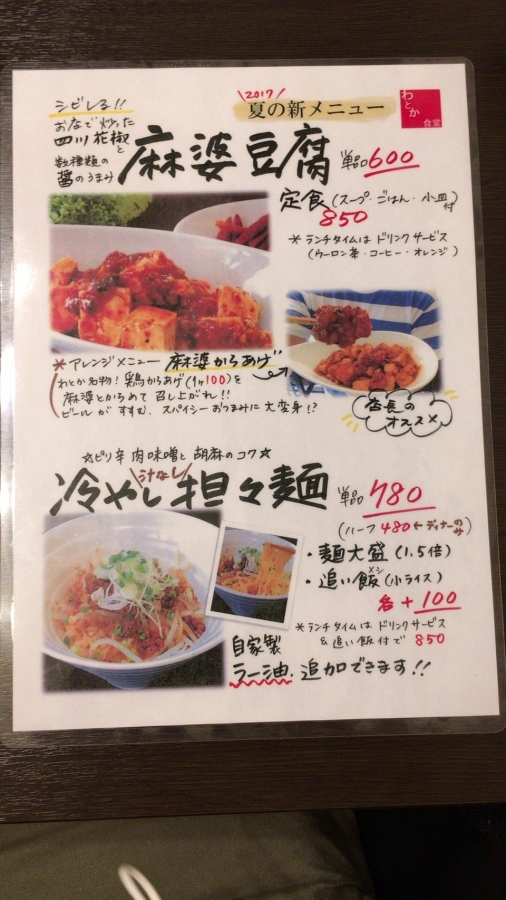 2017
夏の新メニュー
わとか
食堂
シビレる!!
おなで炒った
四川花椒と
数種類の
醤のうまみ
麻婆豆腐
単品600
定食(スープ・ごはん・小皿付)
850
*ランチタイムはドリンクサービス
(ウーロン茶・コーヒー・オレンジ)
*アレンジメニュー 麻婆からあげ
わとか名物!鶏からあげ(1ヶ100)を
麻婆とからめて召し上がれ!!
ビールがすすむ、スパイシーおつまみに大変身!?
店長の
オススメ
☆ピリ辛肉味噌と胡麻のコク☆
汁なし
冷やし担々麺
単品780
(ハーフ480←ディナーのみ)
・麺大盛(1.5倍)
・追い飯(小ライス)
メシ
各+100
*ランチタイムはドリンクサービス
&追い飯付で850
自家製
ラー油、追加できます!!